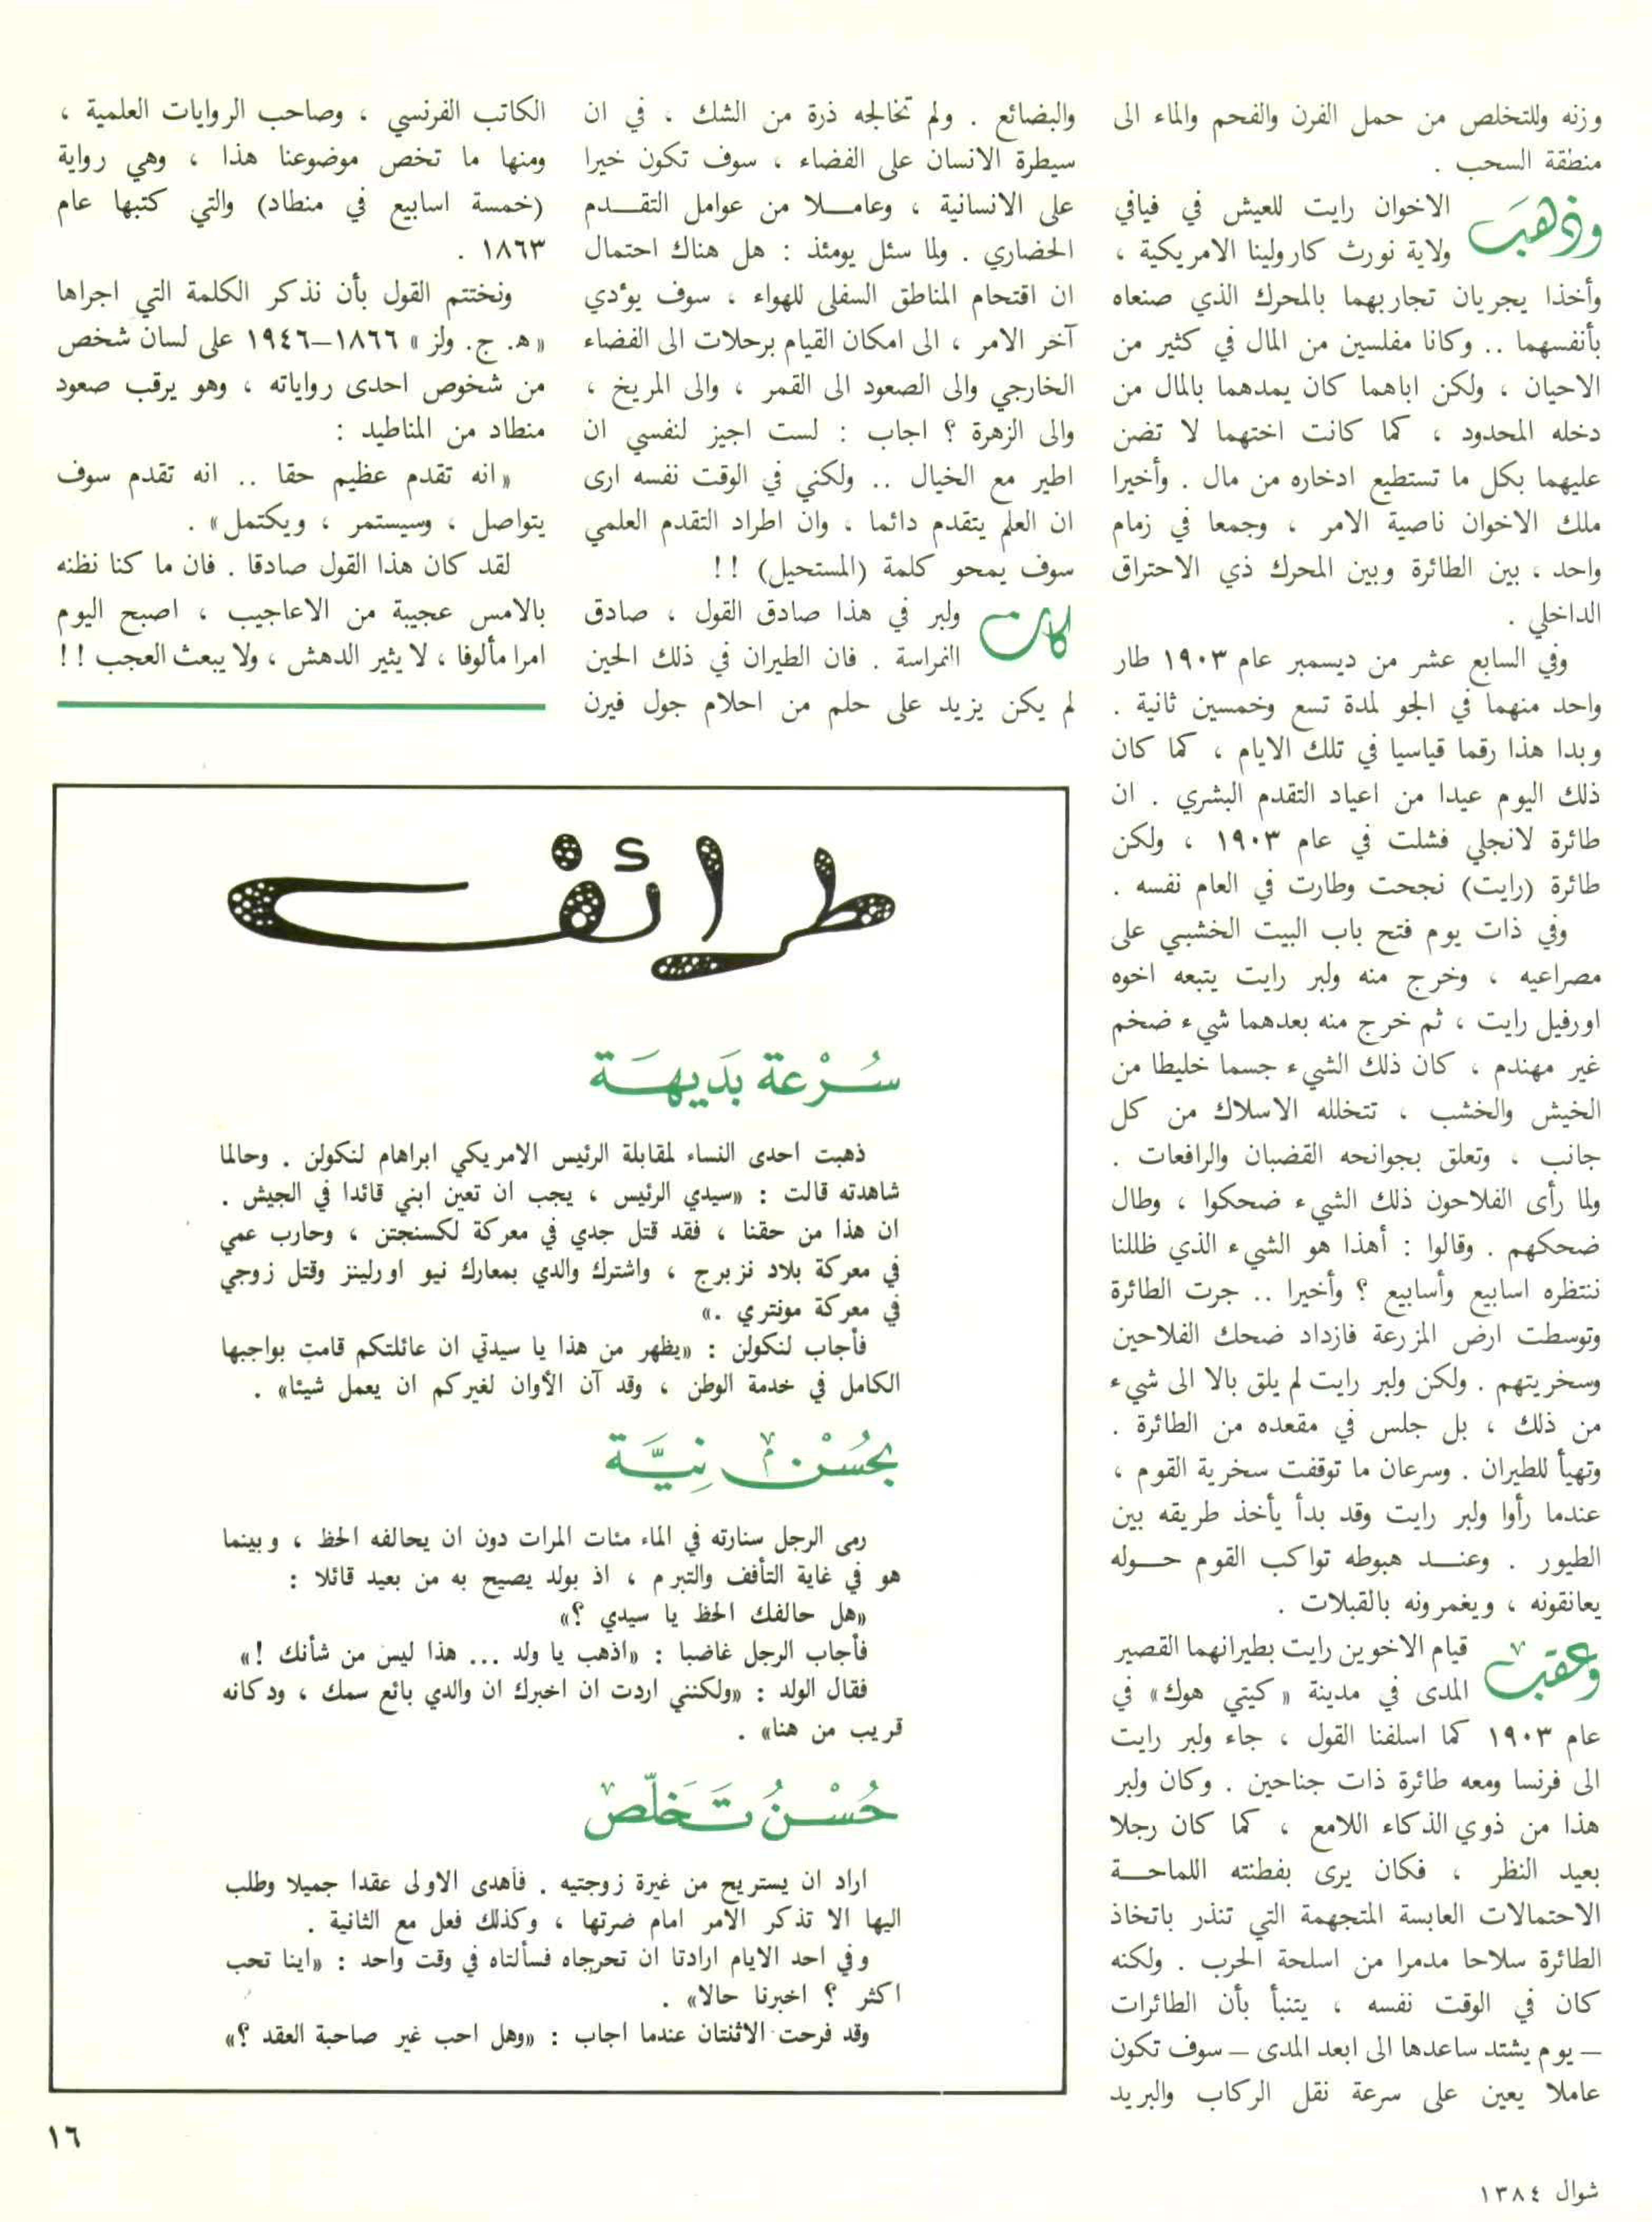 وزنه وللتخلص من حمل الفرن والفحم والماء الى
منطقة السحب .
وذهب الاخوان رايت للعيش في فيافي
ولاية نورث كارولينا الامريكية ،
وأخذا يجريان تجاربهما بالمحرك الذي صنعاه
بأنفسهما .. وكانا مفلسين من المال في كثير من
الاحيان ، ولكن اباهما كان يمدهما بالمال من
دخله المحدود ، كما كانت اختهما لا تضن
عليهما بكل ما تستطيع ادخاره من مال . وأخيرا
ملك الاخوان ناصية الامر ، وجمعا في زمام
واحد ، بين الطائرة وبين المحرك ذي الاحتراق
الداخلي .
وفي السابع عشر من ديسمبر عام ١٩٠٣ طار
واحد منهما في الجو لمدة تسع وخمسين ثانية .
وبدا هذا رقما قياسيا في تلك الايام ، كما كان
ذلك اليوم عيدا من اعياد التقدم البشري . ان
طائرة لانجلي فشلت في عام ١٩٠٣ ، ولكن
طائرة (رايت) نجحت وطارت في العام نفسه .
وفي ذات يوم فتح باب البيت الخشبي على
مصراعيه ، وخرج منه ولبر رايت يتبعه اخوه
اورفيل رايت ، ثم خرج منه بعدهما شيء ضخم
غير مهندم ، كان ذلك الشيء جسما خليطا من
الخيش والخشب ، تتخلله الاسلاك من كل
جانب ، وتعلق بجوانحه القضبان والرافعات .
ولما رأى الفلاحون ذلك الشيء ضحكوا ، وطال
ضحكهم . وقالوا : أهذا هو الشيء الذي ظللنا
ننتظره اسابيع وأسابيع ؟ وأخيرا .. جرت الطائرة
وتوسطت ارض المزرعة فازداد ضحك الفلاحين
وسخريتهم . ولكن ولبر رايت لم يلق بالا الى شيء
من ذلك ، بل جلس في مقعده من الطائرة .
وتهيأ للطيران . وسرعان ما توقفت سخرية القوم ،
عندما رأوا ولبر رايت وقد بدأ يأخذ طريقه بين
الطيور . وعنــد هبوطه تواكب القوم حــوله
يعانقونه ، ويغمرونه بالقبلات .
وعقب قيام الاخوين رايت بطيرانهما القصير
المدى في مدينة «كيتي هوك» في
عام ١٩٠٣ كما اسلفنا القول ، جاء ولبر رايت
الى فرنسا ومعه طائرة ذات جناحين . وكان ولبر
هذا من ذوي الذكاء اللامع ، كما كان رجلا
بعيد النظر ، فكان يرى بفطنته اللماحــة
الاحتمالات العابسة المتجهمة التي تنذر باتخاذ
الطائرة سلاحا مدمرا من اسلحة الحرب . ولكنه
كان في الوقت نفسه ، يتنبأ بأن الطائرات
– يوم يشتد ساعدها الى ابعد المدى – سوف تكون
عاملا يعين على سرعة نقل الركاب والبريد
والبضائع . ولم تخالجه ذرة من الشك ، في ان
سيطرة الانسان على الفضاء ، سوف تكون خيرا
على الانسانية ، وعامــلا من عوامل التقــدم
الحضاري . ولما سئل يومئذ : هل هناك احتمال
ان اقتحام المناطق السفلى للهواء ، سوف يؤدي
آخر الامر ، الى امكان القيام برحلات الى الفضاء
الخارجي والى الصعود الى القمر ، والى المريخ ،
والى الزهرة ؟ اجاب : لست اجيز لنفسي ان
اطير مع الخيال .. ولكني في الوقت نفسه ارى
ان العلم يتقدم دائما ، وان اطراد التقدم العلمي
سوف يمحو كلمة (المستحيل) !!
كان ولبر في هذا صادق القول ، صادق
النمراسة . فان الطيران في ذلك الحين
لم يكن يزيد على حلم من احلام جول فيرن
الكاتب الفرنسي ، وصاحب الروايات العلمية ،
ومنها ما تخص موضوعنا هذا ، وهي رواية
(خمسة اسابيع في منطاد) والتي كتبها عام
١٨٦٣ .
ونختتم القول بأن نذكر الكلمة التي اجراها
«ه. ج. ولز» ١٨٦٦–١٩٤٦ على لسان شخص
من شخوص احدى رواياته ، وهو يرقب صعود
منطاد من المناطيد :
«انه تقدم عظيم حقا .. انه تقدم سوف
يتواصل ، وسيستمر ، ويكتمل» .
لقد كان هذا القول صادقا . فان ما كنا نظنه
بالامس عجيبة من الاعاجيب ، اصبح اليوم
امرا مألوفا ، لا يثير الدهش ، ولا يبعث العجب !!
طرائف
سُرْعة بَديهَة
ذهبت احدى النساء لمقابلة الرئيس الامريكي ابراهام لنكولن . وحالما
شاهدته قالت : «سيدي الرئيس ، يجب ان تعين ابني قائدا في الجيش .
ان هذا من حقنا ، فقد قتل جدي في معركة لكسنجتن ، وحارب عمي
في معركة بلاد نزبرج ، واشترك والدي بمعارك نيو اورلينز وقتل زوجي
في معركة مونتري .»
فأجاب لنكولن : «يظهر من هذا يا سيدتي ان عائلتكم قامت بواجبها
الكامل في خدمة الوطن ، وقد آن الأوان لغيركم ان يعمل شيئا» .
بحُسْن نِيَّة
رمى الرجل سنارته في الماء مئات المرات دون ان يحالفه الحظ ، وبينما
هو في غاية التأفف والتبرم ، اذ بولد يصيح به من بعيد قائلا :
«هل حالفك الحظ يا سيدي ؟»
فأجاب الرجل غاضبا : «اذهب يا ولد ... هذا ليس من شأنك !»
فقال الولد : «ولكنني اردت ان اخبرك ان والدي بائع سمك ، ودكانه
قريب من هنا» .
حُسْنُ تَخَلّص
اراد ان يستريح من غيرة زوجتيه . فأهدى الاولى عقدا جميلا وطلب
اليها الا تذكر الامر امام ضرتها ، وكذلك فعل مع الثانية .
وفي احد الايام ارادتا ان تحرجاه فسألتاه في وقت واحد : «اينا تحب
اكثر ؟ اخبرنا حالا» .
وقد فرحت الاثنتان عندما اجاب : «وهل احب غير صاحبة العقد ؟»
١٦
شوال ١٣٨٤